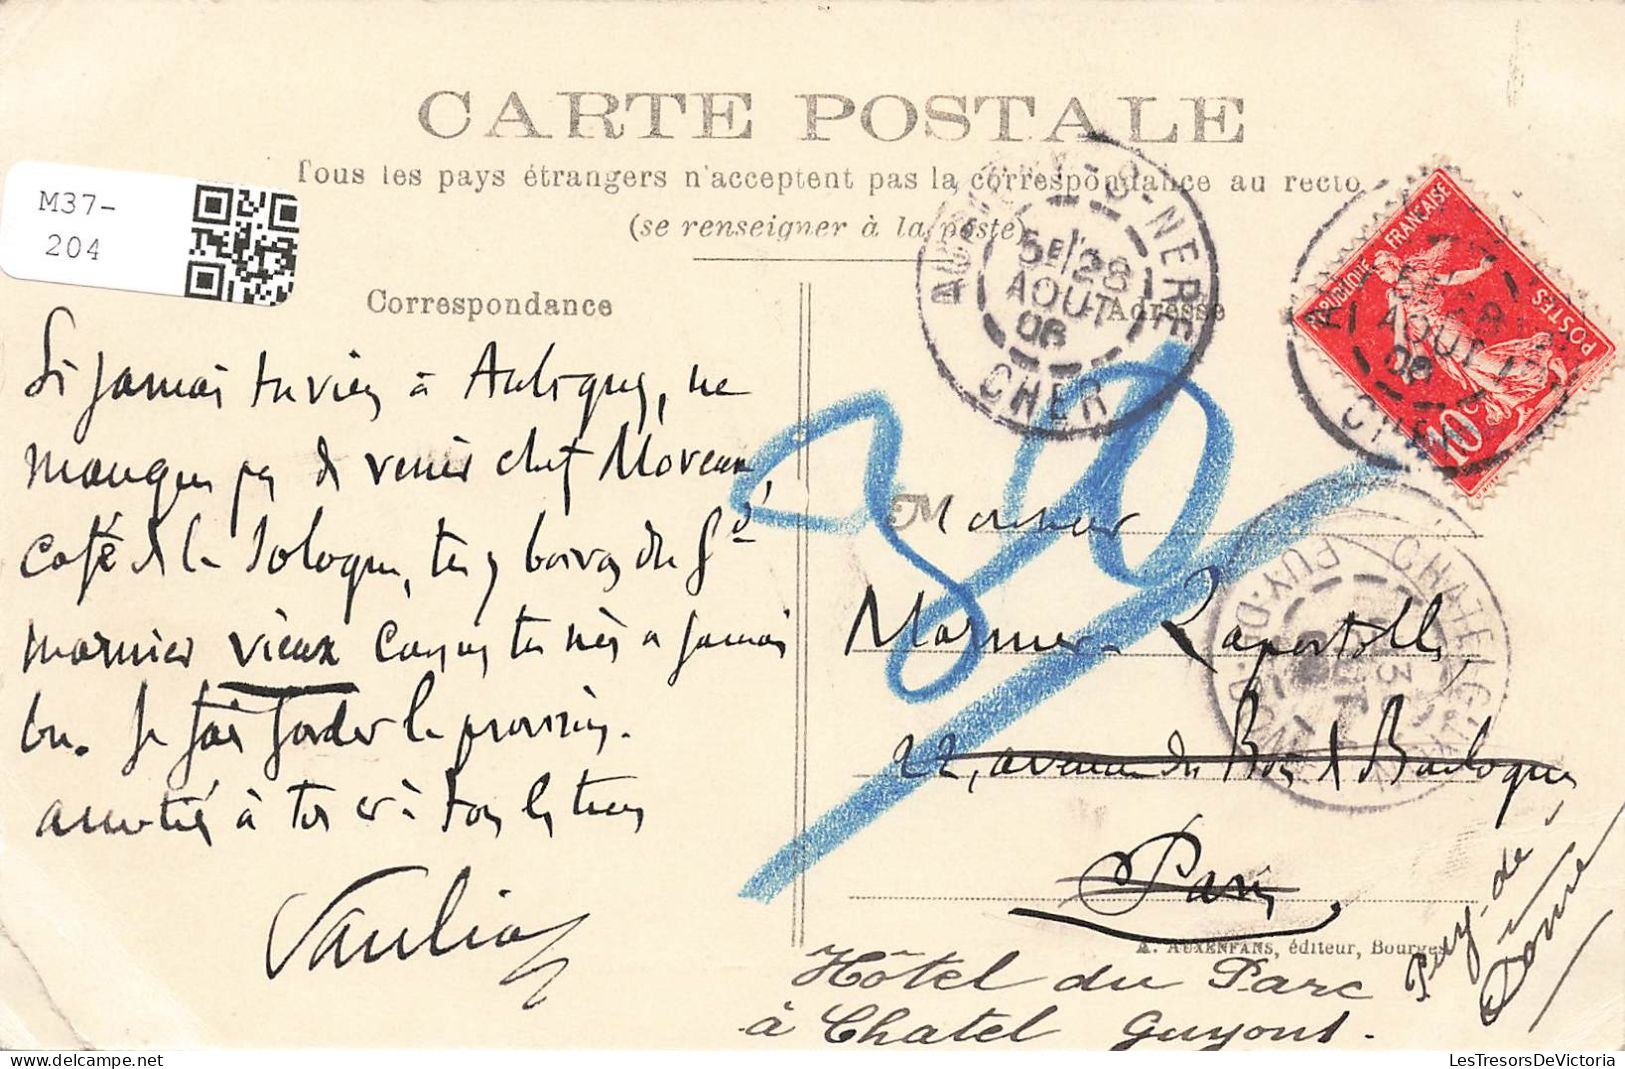 CARTE POSTALE
Tous les pays étrangers n'acceptent pas la correspondance au recto
(se renseigner à la poste)
M37-
204
Correspondance
Adresse
Si jamais tu viens à Aubigny, ne
manques pas de venir chez Moreau,
café de la Sologne, tu y boiras du Gd
marnier vieux comme tu n'en a jamais
bu. Je fais garder la provision.
amitiés à toi et à tous les tiens
M Monsieur
Marnier-Lapostolle
22, avenue du Bois de Boulogne
Paris
A. AUXENFANS, éditeur, Bourges
Hôtel du Parc
à Chatel Guyont.
Puy-de
Dôme
AUBIGNY-S-NERE
5E/28
AOUT
08
CHER
REPUBLIQUE FRANCAISE
POSTES
10c
AOUT
08
CHER
CHATEL-GUYON
PUY-DE-DOME
LesTresorsDeVictoria